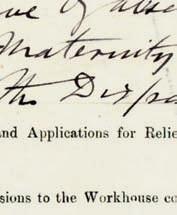 Maternity
the Dispa
and Applications for Relie
sions to the Workhouse co